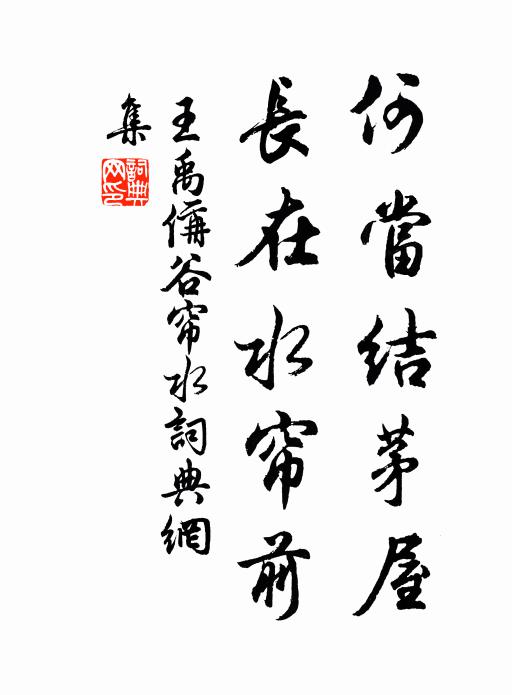 何當結茅屋
長在水帘前
王禹偁谷帘水詞典網
集
詞典
网印